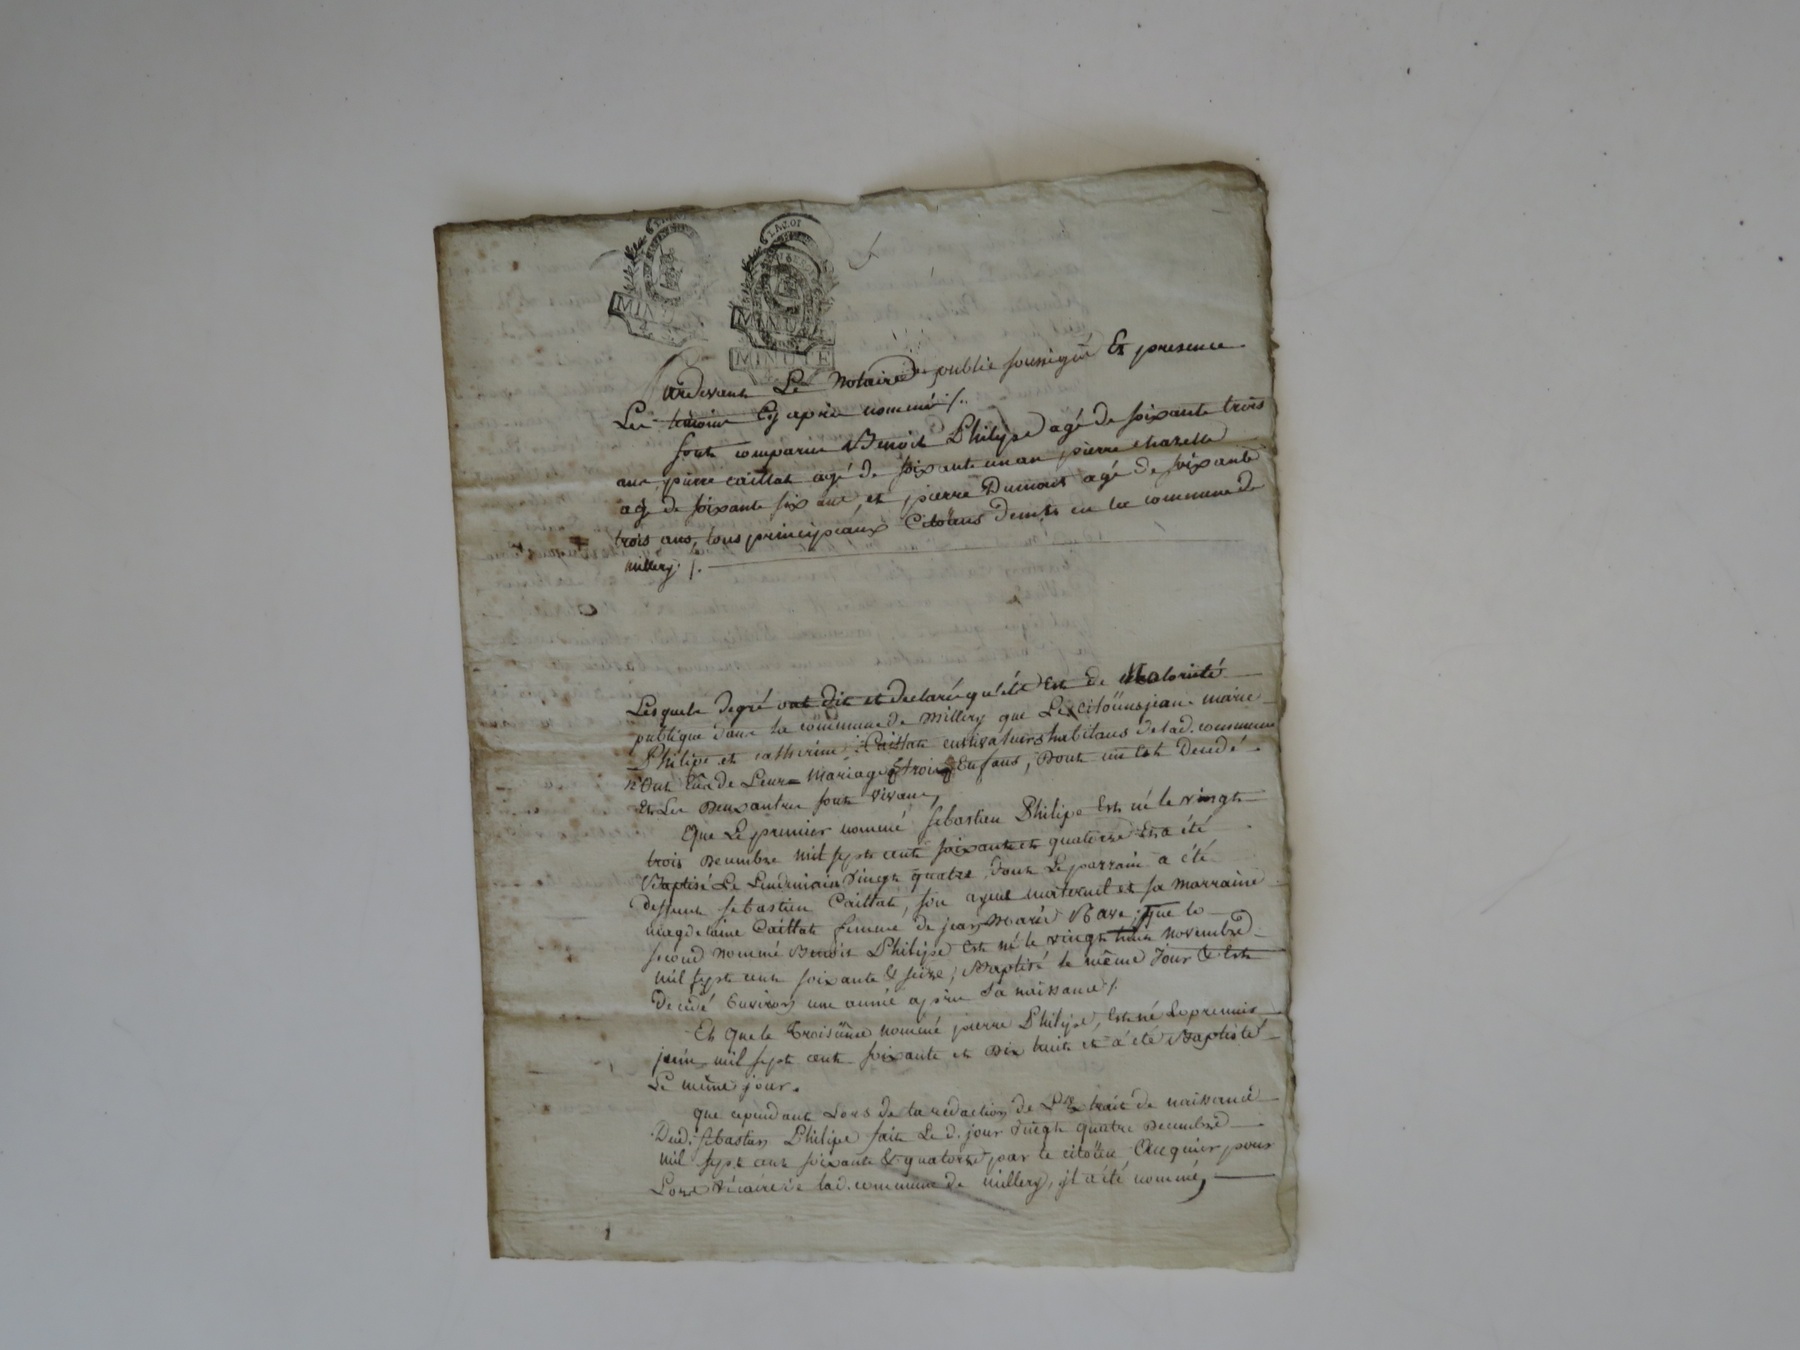 MINUTE
MINUTE
Pardevant Le Notaire public soussigné Et presence
Les témoins Cy après nommés /.
sont comparus Benoit Philipe agé de soixante trois
ans, pierre caillat agé de soixante un an pierre chazelle
agé de soixante six ans, et pierre Dumont agé de soixante
trois ans, tous principeaux Citoïens demts en la commune de
millery. /.
Lesquels de gré ont dit et declaré qu'il Est de Notorieté
publique dans la commune de Millery que Les citöiens jean marie
Philipe et catherine Caillat cultivateurs habitans de lad. commune
n'Ont Eûs de Leur Mariage trois Enfans, Dont un Est Decedé
Et Les Deux autres sont vivans,
Que Le premier nommé sebastien Philipe Est né le vingt
trois Decembre mil sept cent soixante et quatorze Et a été
Baptisé Le Lendemain vingt quatre, Dont Le parrain a été
deffunt sebastien Caillat, son ayeul maternel et sa marraine
magdelaine Caillat femme de jean Marie ; Que le
second nommé Benoit Philipe Est né le vingt huit novembre
mil sept cent soixante & seize, Baptisé le même Jour & Est
Decedé Environ une année après sa naissance /.
Et que le Troisième nommé pierre Philipe, Est né Le premier
juin mil sept cent soixante et Dix huit et a été Baptisé
Le même jour.
que cependant Lors de la redaction de L'Extrait de naissance
Dud. sebastien Philipe faite Le d. jour vingt quatre Decembre
mil sept cent soixante & quatorze par le citöien pour
Lors vicaire de lad. commune de millery, il a été nommé,